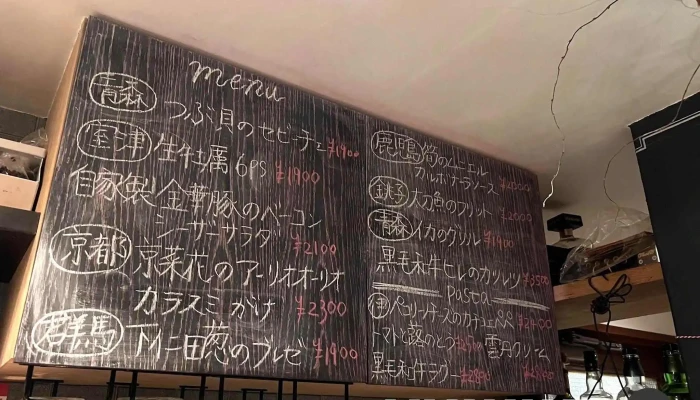 menu
青森 つぶ貝のセビーチェ ¥1900
室津 生牡蠣 6ps ¥1900
自家製 金華豚のベーコン
シーザーサラダ ¥2100
京都 京菜花のアーリオオーリオ
カラスミがけ ¥2300
群馬 下仁田葱のブレゼ ¥1900
鹿児島 筍のソテー
カルボナーラソース
銚子 太刀魚のフリット ¥2000
青森 イカのグリル ¥1900
黒毛和牛ヒレのカツレツ ¥3500
pasta
ペコリーノチーズのカチョエペペ ¥2400
トマトと
黒毛和牛ラグー